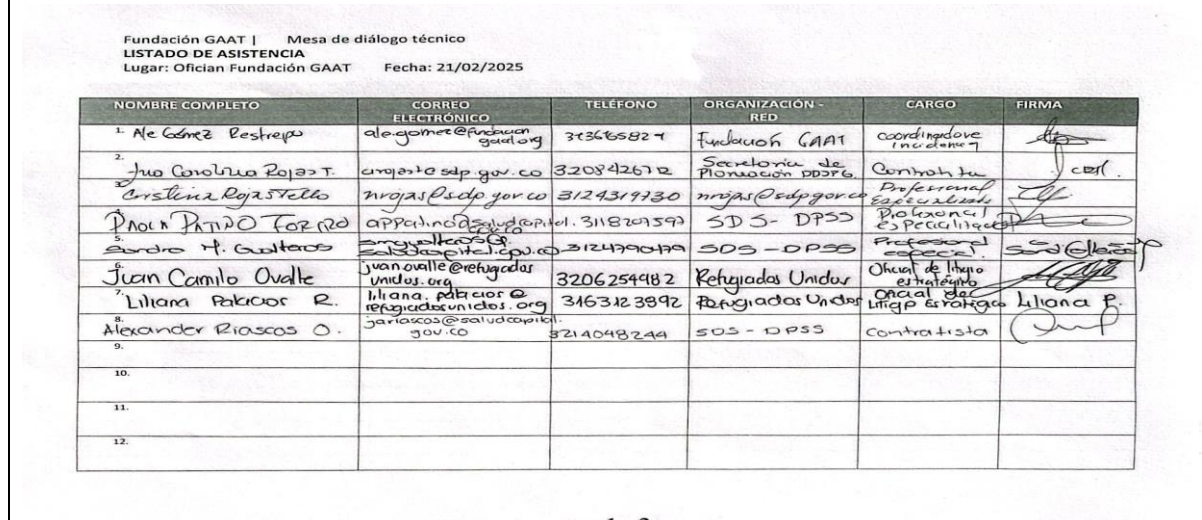 Fundación GAAT | Mesa de diálogo técnico
LISTADO DE ASISTENCIA
Lugar: Ofician Fundación GAAT Fecha: 21/02/2025
NOMBRE COMPLETO CORREO ELECTRÓNICO TELÉFONO ORGANIZACIÓN - RED CARGO FIRMA
1. Ale Gómez Restrepo ale.gomez@fundacion gaat.org Fundación GAAT
2. Carolina Rojas T. 3208426712 Secretaria de Planeación Contratista
3. Cristina Rojas Tello nrojas@sdp.gov.co 3124319730 nrojas@sdp.gov.co Profesional Especializado
4. PAOLA PATIÑO 3118201597 SDS - DPSS Profesional
5. Sandra 3124790479 SDS - DPSS Profesional especial.
6. Juan Camilo Ovalle juan.ovalle@refugiados unidos.org 3206254982 Refugiados Unidos Oficial de litigio estratégico
7. Liliana Palacios R. liliana.palacios@ refugiadosunidos.org 3163123892 Refugiados Unidos Oficial de Litigio Estratégico Liliana P.
8. Alexander Riascos O. jariascos@saludcapital. gov.co 3214048244 SDS - DPSS Contratista
9.
10.
11.
12.